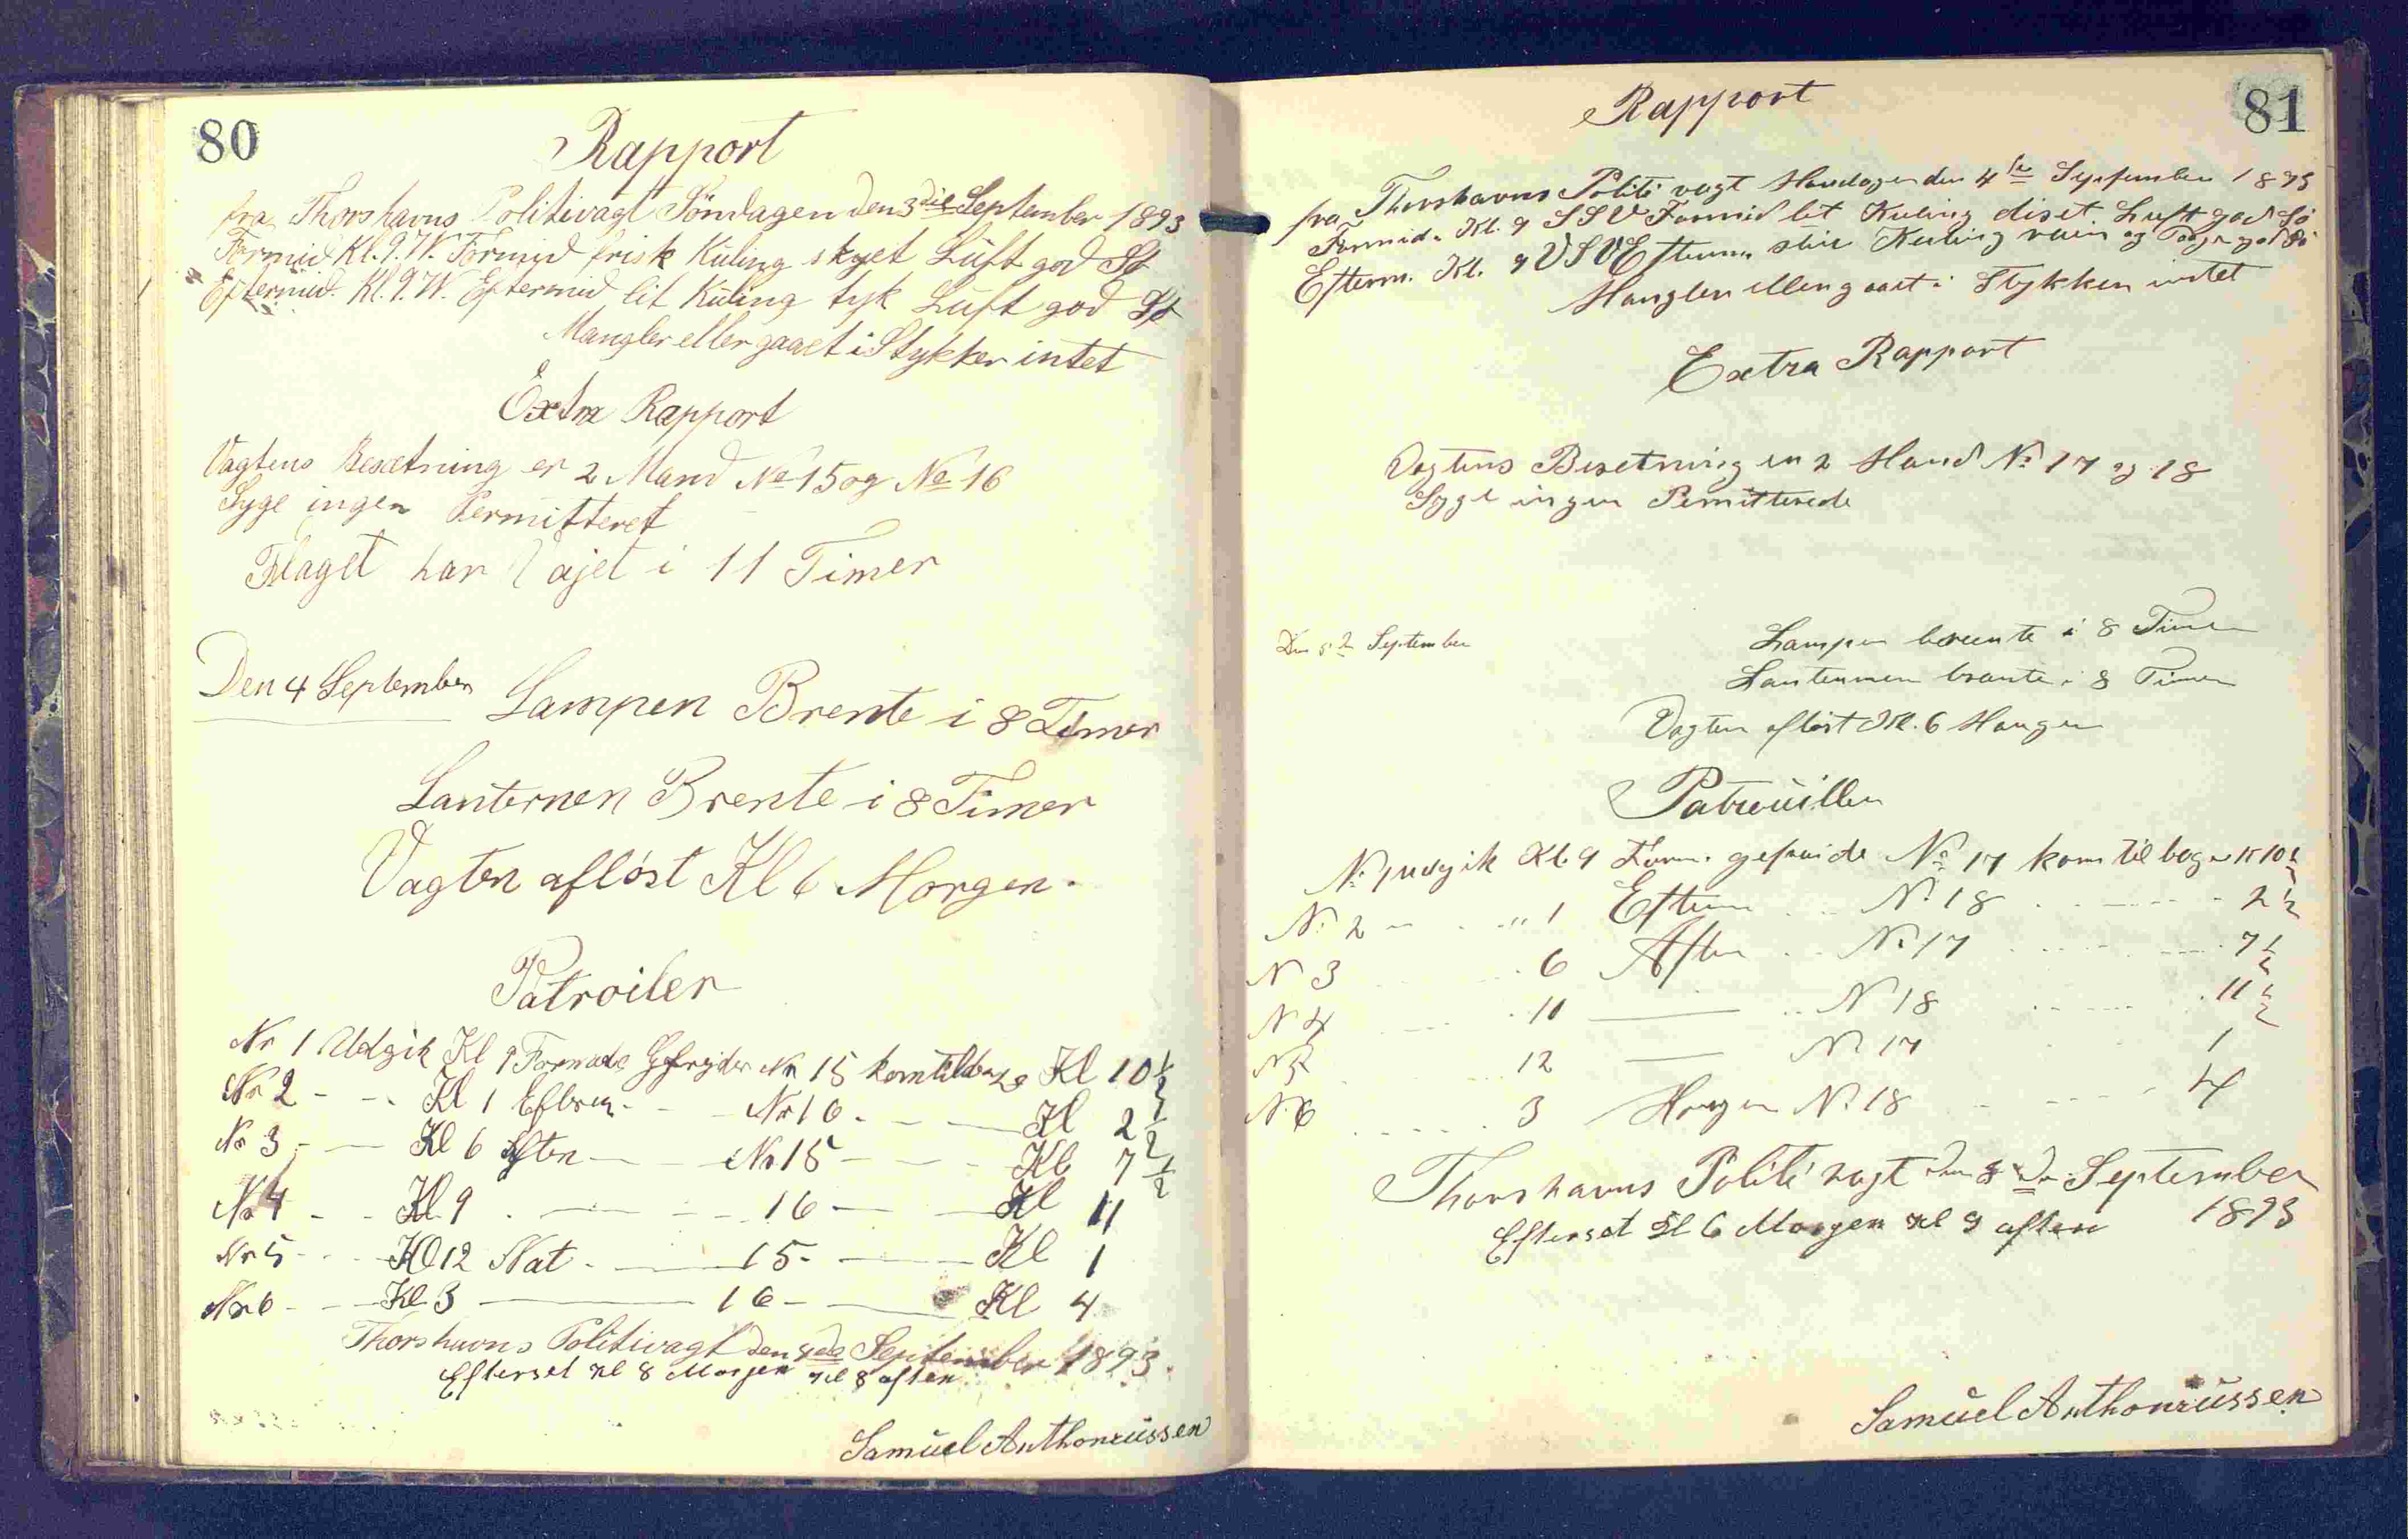 80
Rapport
fra Thorshavns Politivagt Söndagen den 3die September 1893
Formid Kl. 9. W. Formid frisk Kuling skyet Luft god Sö
Eftermid. Kl. 9. W. Eftermid lit Kuling tyk Luft god Sö
Mangler eller gaaet i Stykker intet
Extra Rapport
Vagtens Besætning er 2 Mand No 15 og No 16
Syge ingen Permitteret
Flaget har Vajet i 11 Timer
Den 4 September
Lampen Brente i 8 Timer
Lanternen Brente i 8 Timer
Vagten afløst Kl 6 Morgen.
Patroiler
Nr 1 Udgik Kl 9 Formd Gefrejder Nr 15 kom tilbage Kl 10 1/2
Nr 2 - - Kl 1 Efterm. - - Nr 16 - - Kl 2 1/2
Nr 3 - - Kl 6 Aften - - Nr 15 - - Kl 7 1/2
Nr 4 - - Kl 9 - - 16 - - Kl 11
Nr 5 - - Kl 12 Nat - - 15 - - Kl 1
Nr 6 - - Kl 3 - - 16 - - Kl 4
Thorshavns Politivagt den 4de September 1893.
Efterset Kl 8 Morgen Kl 8 aften
Samuel Anthoniussen
81
Rapport
fra Thorshavns Politi vagt Mandagen den 4de September 1893
Formid. Kl. 9 SSV Formid lit Kuling diset Luft god Sö
Efterm. Kl. 9 VSV Efterm. stiv Kuling og god Sö
Mangler eller gaaet i Stykker intet
Extra Rapport
Vagtens Besetning er 2 Mand No 17 og 18
Syge ingen Permitterede
Den 5te September
Lampen brente i 8 Timer
Lanternen brente i 8 Timer
Vagten afløst Kl. 6 Morgen
Patrouiller
No 1 udgik Kl. 9 Form. gefreide No 17 kom tilbage Kl 10 1/2
No 2 - - " 1 Efterm - - No 18 - - 2 1/2
N 3 - - 6 Aften - - No 17 - - 7 1/2
N 4 - - 10 - - N 18 - - 11 1/2
N 5 - - 12 - - No 17 1
N. 6 - - 3 Morgen No 18 - - 4
Thorshavns Politi vagt den September
1893
Efterset Kl 6 Morgen Kl 9 aften
Samuel Anthoniussen